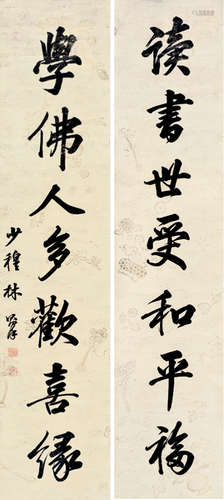 讀書世受和平福
學佛人多歡喜緣
少穆林則徐